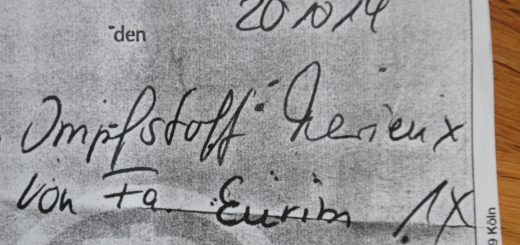 20 10 14
den
Impfstoff: Merieux
von Fa. Eurim 1X
9 Köln